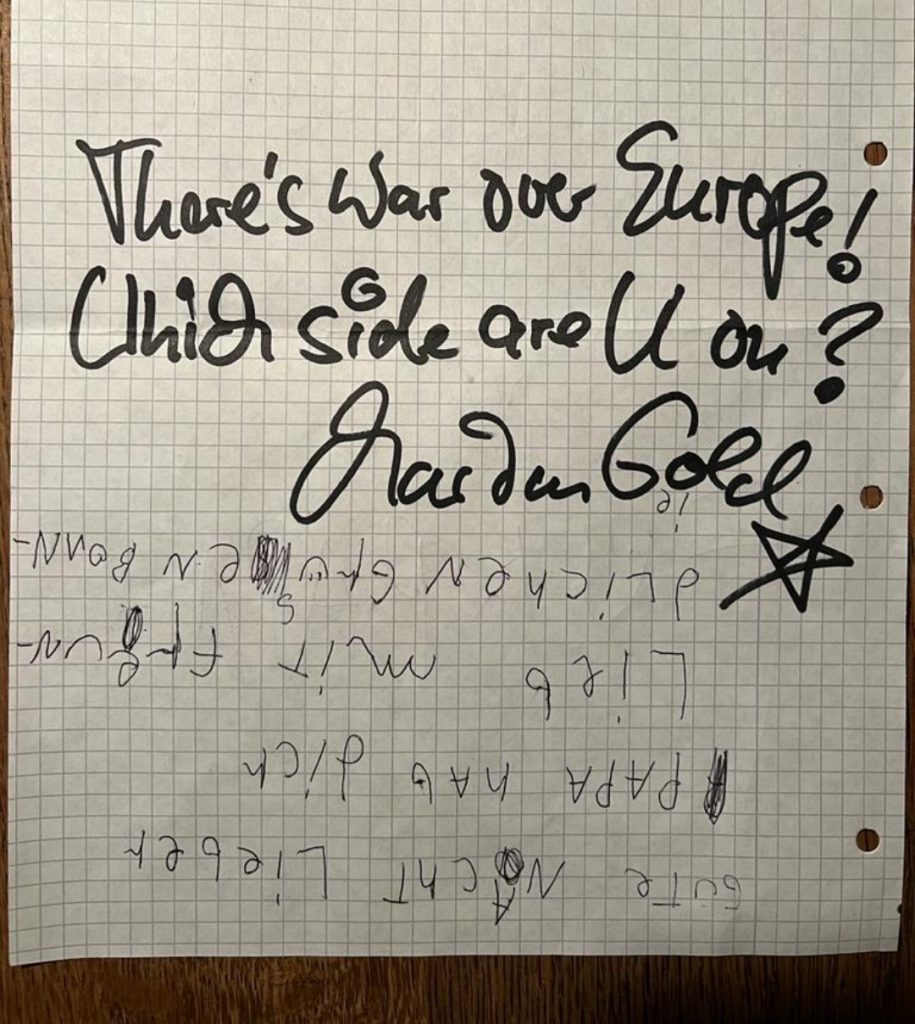 There's War over Europe!
Which side are U on?
Marian Gold
GUTe NAchT Lieber
PAPA hab dich
Lieb miT freun-
dLichen Grüsen BONN-
ie